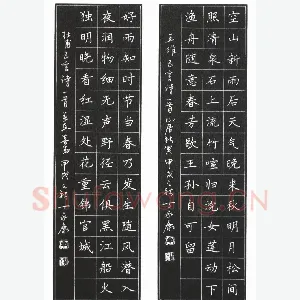 空山新雨后天气晚来秋明月松间
照清泉石上流竹喧归浣女莲动下
渔舟随意春芳歇王孙自可留
王维五言诗一首山居秋暝甲戌之
好雨知时节当春乃发生随风潜入
夜润物细无声野径云俱黑江船火
独明晓看红湿处花重锦官城
杜甫五言诗一首春夜喜雨甲戌之